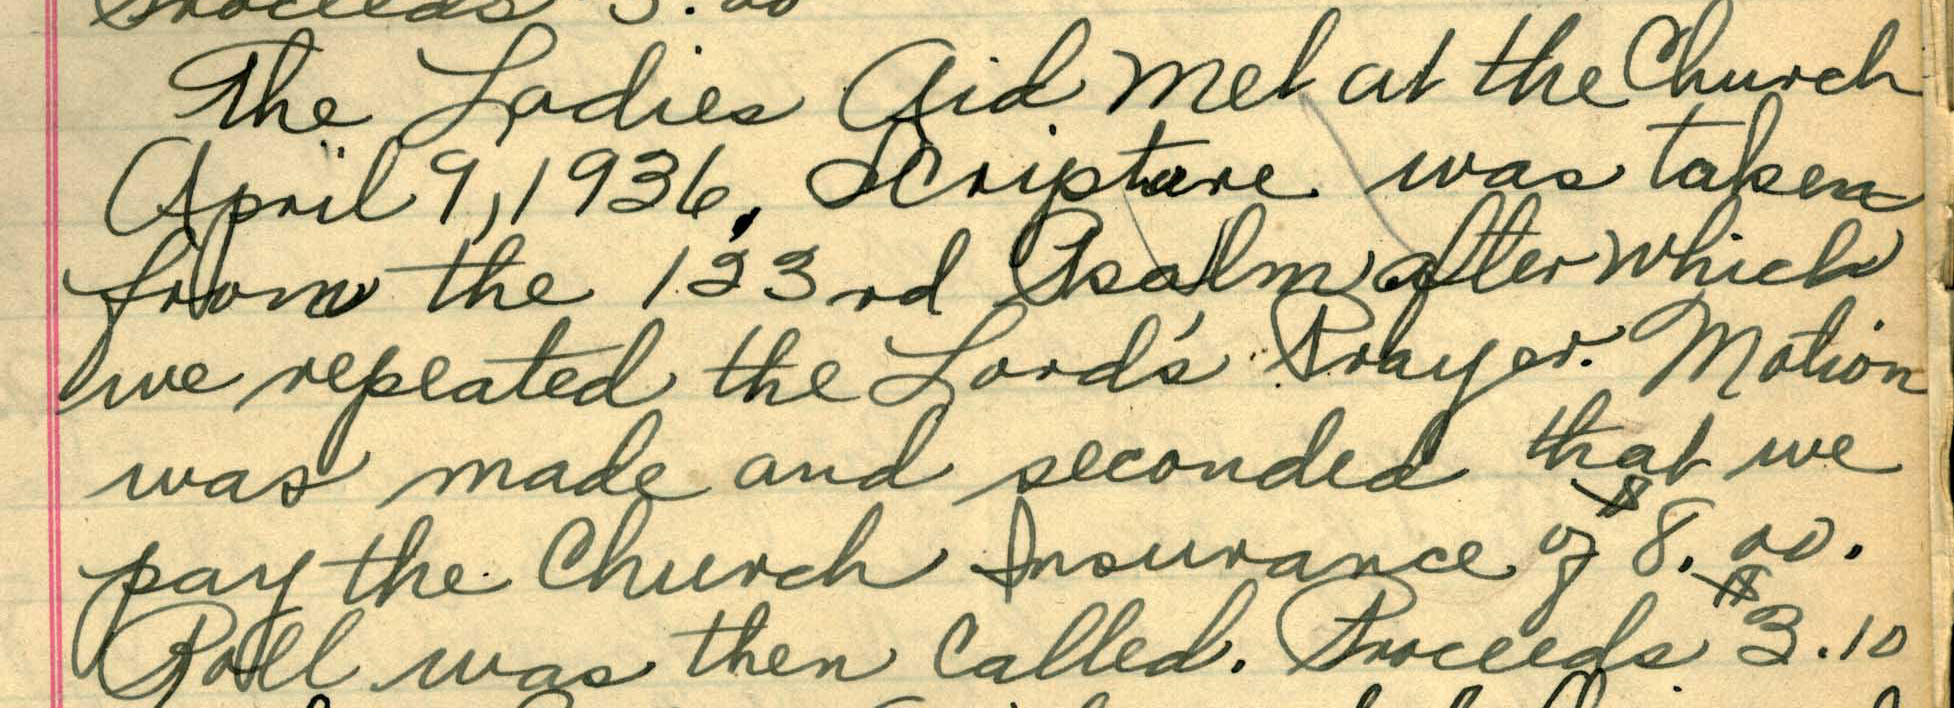 Proceeds 5.00
The Ladies Aid Met at the Church
April 9, 1936. Scripture was taken
from the 133rd Psalm after which
we repeated the Lord's Prayer. Motion
was made and seconded that we
pay the Church Insurance of $8.00.
Roll was then called. Proceeds $3.10